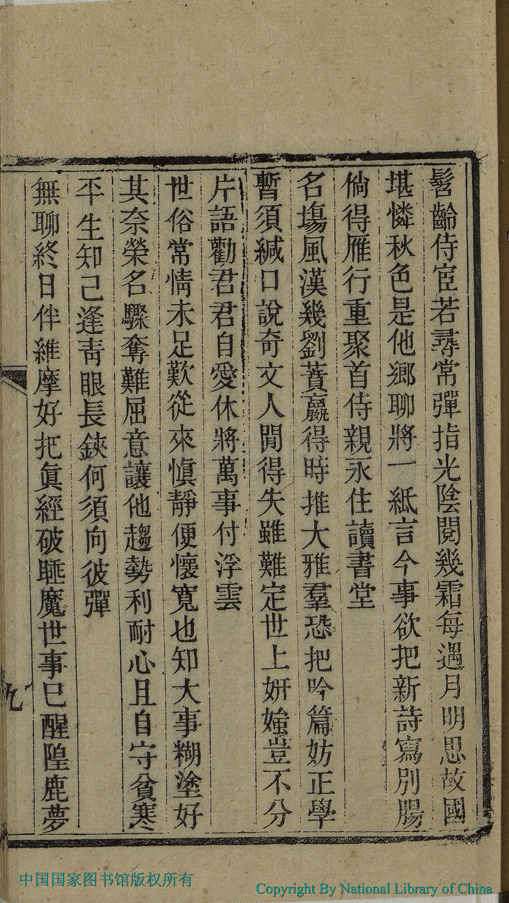 髫齡侍宦若尋常彈指光陰閱幾霜每遇月明思故國
堪憐秋色是他鄉聊將一紙言今事欲把新詩寫別腸
倘得雁行重聚首侍親永住讀書堂
名塲風漢幾劉蕡贏得時推大雅羣恐把吟篇妨正學
暫須緘口說奇文人間得失雖難定世上妍媸豈不分
片語勸君君自愛休將萬事付浮雲
世俗常情未足歎從來愼靜便懷寬也知大事糊塗好
其奈榮名驟奪難屈意讓他趨勢利耐心且自守貧寒
平生知己逢靑眼長鋏何須向彼彈
無聊終日伴維摩好把眞經破睡魔世事已醒隍鹿夢
九
中国国家图书馆版权所有
Copyright By National Library of China